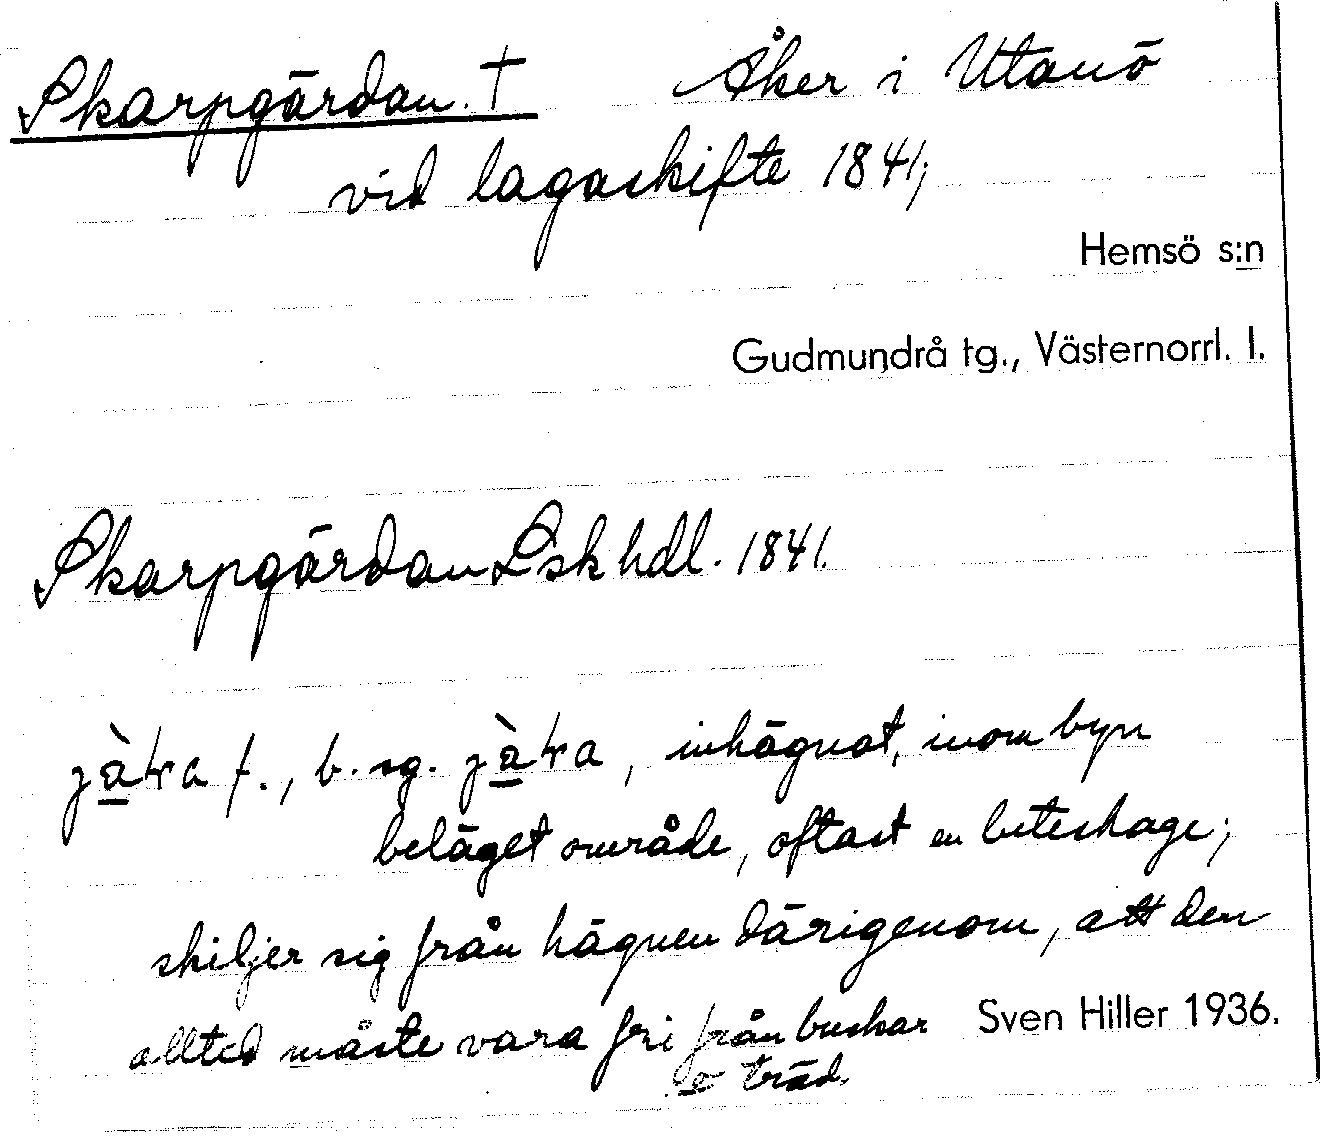 Skarpgärdan. † Åker i Utanö
vid lagaskifte 1841;
Hemsö s:n
Gudmundrå tg., Västernorrl. l.
Skarpgärdan Lsk hdl. 1841.
f., b. sg. , inhägnat, inom byn
beläget område, oftast en beteshage;
skiljer sig från hägnen därigenom, att den
alltid måste vara fri från buskar
o träd.
Sven Hiller 1936.